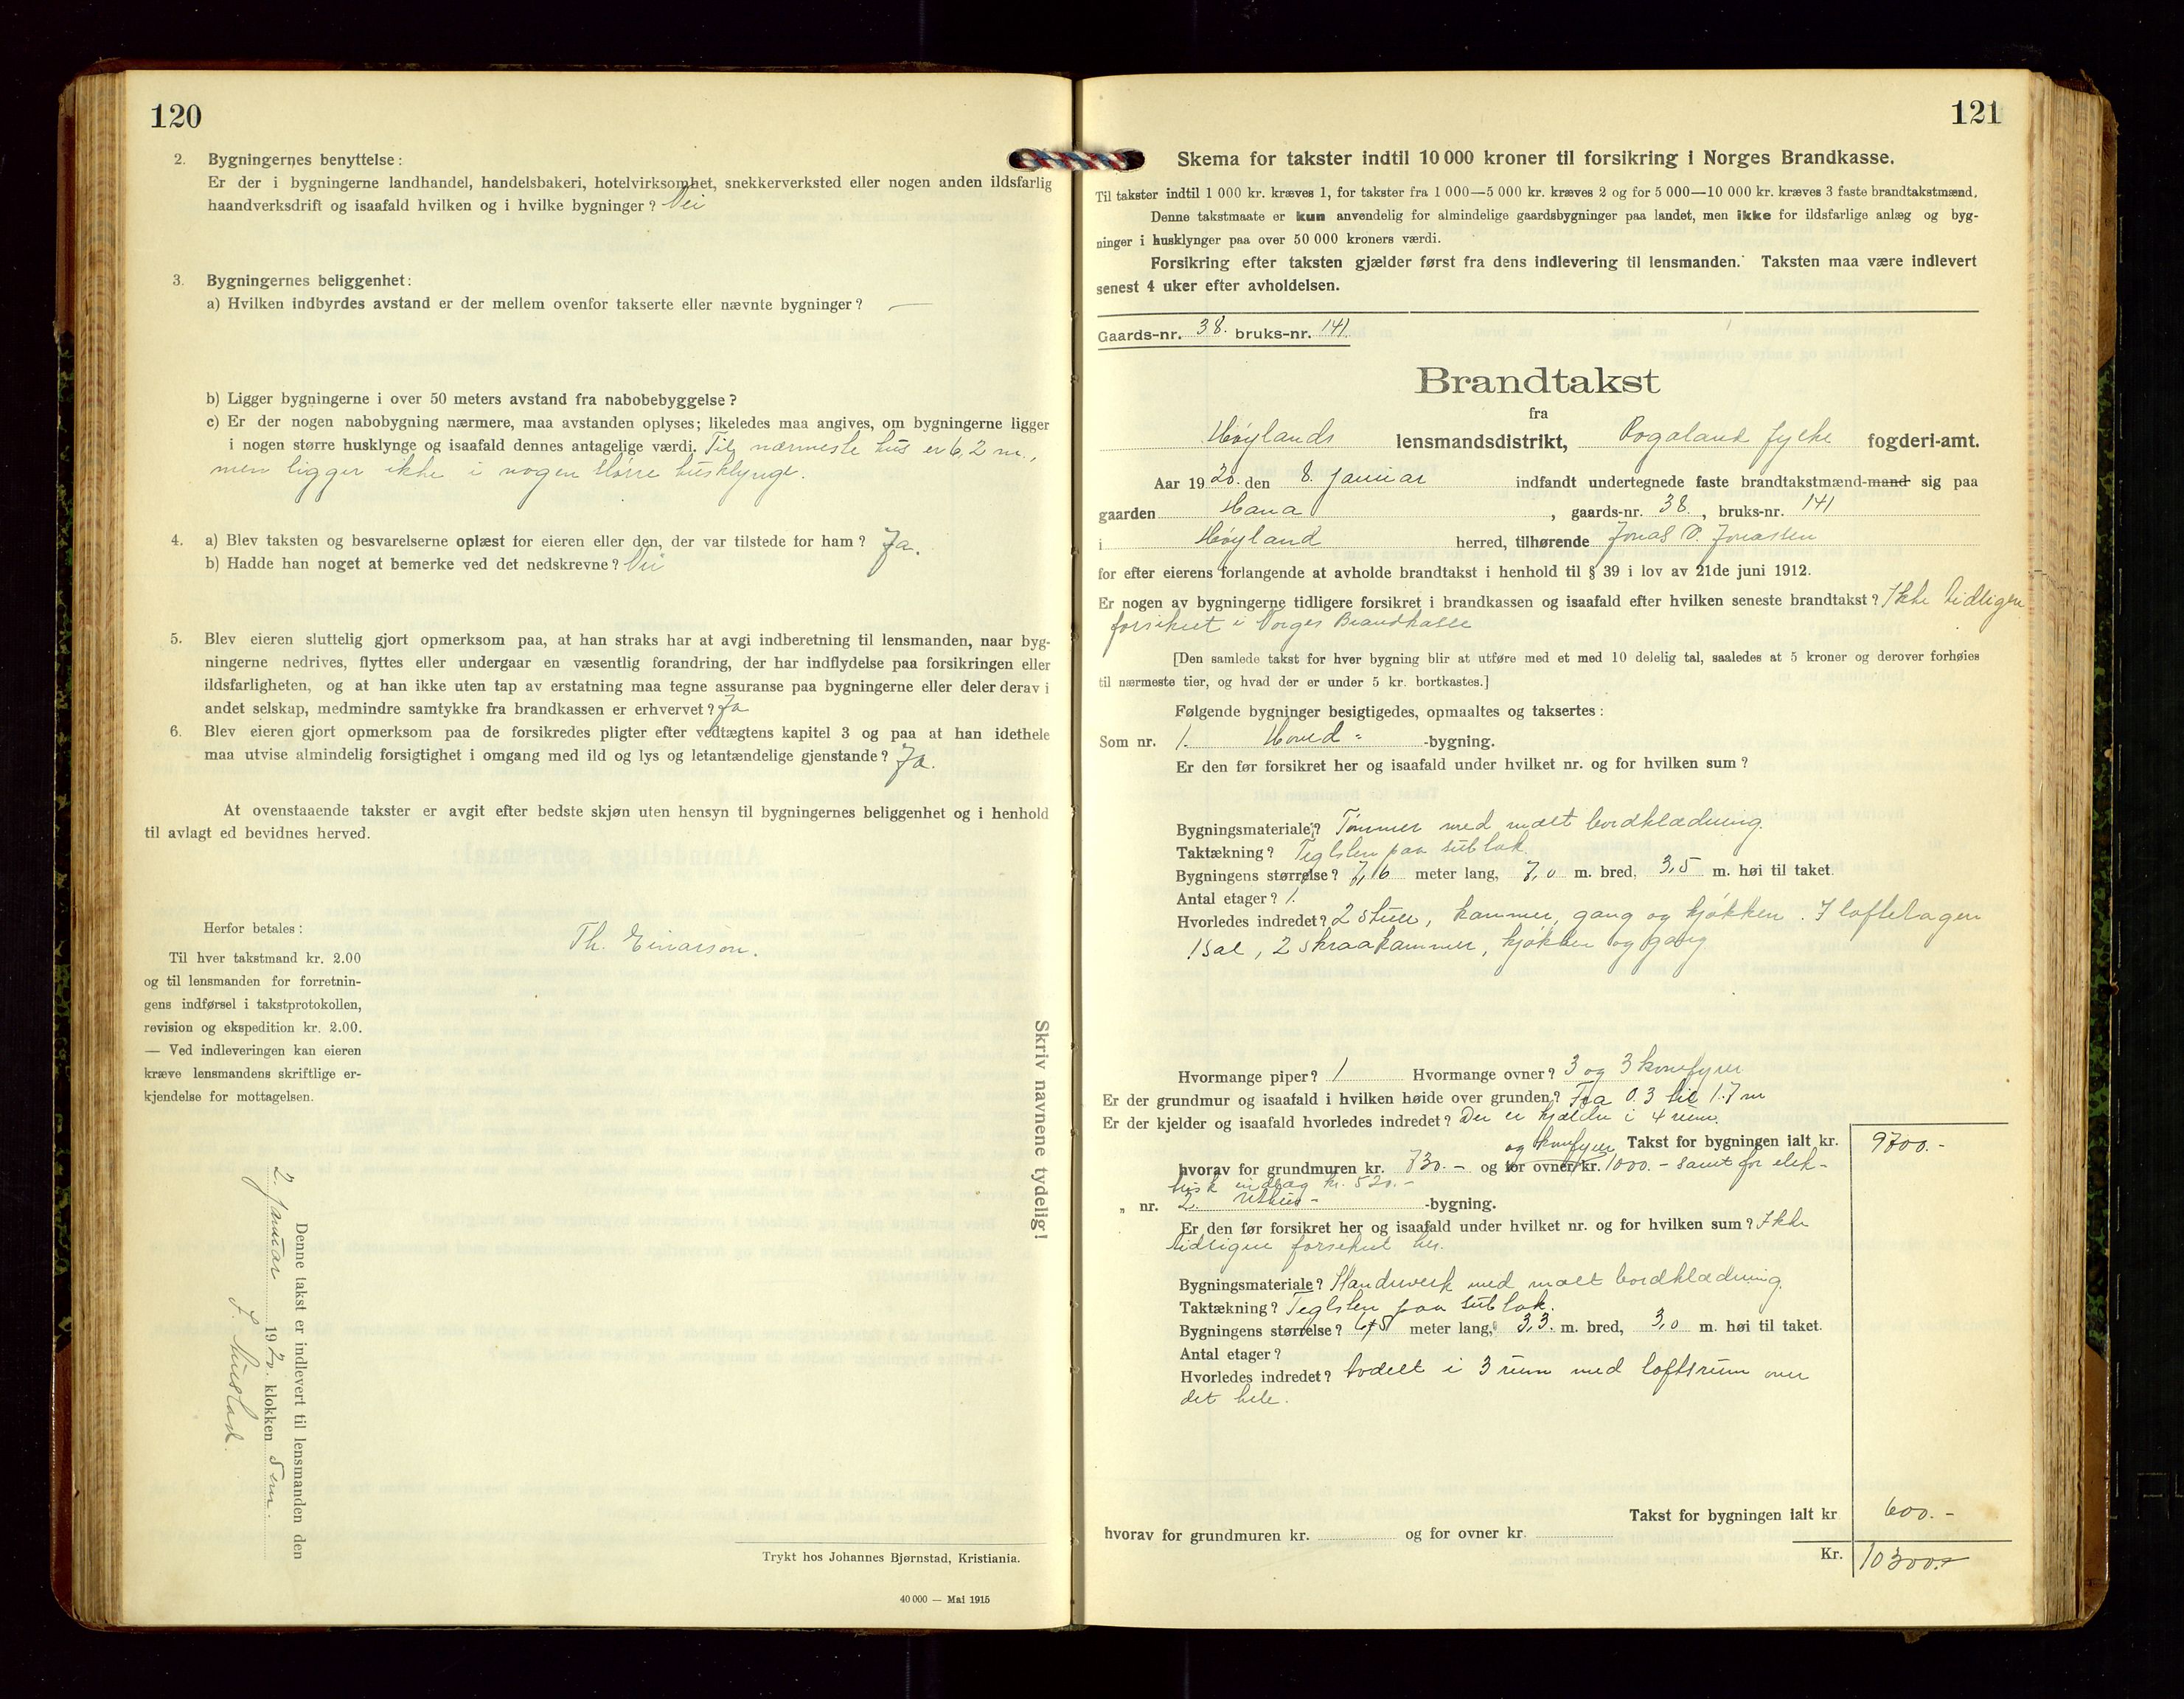 120
2. Bygningernes benyttelse:
Er der i bygningerne landhandel, handelsbakeri, hotelvirksomhet, snekkerverksted eller nogen anden ildsfarlig
haandverksdrift og isaafald hvilken og i hvilke bygninger? Nei
3. Bygningernes beliggenhet:
a) Hvilken indbyrdes avstand er der mellem ovenfor takserte eller nævnte bygninger? —
b) Ligger bygningerne i over 50 meters avstand fra nabobebyggelse?
c) Er der nogen nabobygning nærmere, maa avstanden oplyses; likeledes maa angives, om bygningerne ligger
i nogen større husklynge og isaafald dennes antagelige værdi. Til nærmeste hus er 6,2 m.,
men ligger ikke i nogen større husklynge.
4. a) Blev taksten og besvarelserne oplæst for eieren eller den, der var tilstede for ham? Ja.
b) Hadde han noget at bemerke ved det nedskrevne? Nei
5. Blev eieren sluttelig gjort opmerksom paa, at han straks har at avgi indberetning til lensmanden, naar byg-
ningerne nedrives, flyttes eller undergaar en væsentlig forandring, der har indflydelse paa forsikringen eller
ildsfarligheten, og at han ikke uten tap av erstatning maa tegne assuranse paa bygningerne eller deler derav i
andet selskap, medmindre samtykke fra brandkassen er erhvervet? Ja
6. Blev eieren gjort opmerksom paa de forsikredes pligter efter vedtægtens kapitel 3 og paa at han idethele
maa utvise almindelig forsigtighet i omgang med ild og lys og letantændelige gjenstande? Ja.
At ovenstaaende takster er avgit efter bedste skjøn uten hensyn til bygningernes beliggenhet og i henhold
til avlagt ed bevidnes herved.
Herfor betales:
Til hver takstmand kr. 2.00
og til lensmanden for forretnin-
gens indførsel i takstprotokollen,
revision og ekspedition kr. 2.00.
— Ved indleveringen kan eieren
kræve lensmandens skriftlige er-
kjendelse for mottagelsen.
Th. Einarson.
Skriv navnene tydelig!
Denne takst er indlevert til lensmanden den
2. januar 1920. klokken 5 em.
Trykt hos Johannes Bjørnstad, Kristiania.
40 000 — Mai 1915
121
Skema for takster indtil 10 000 kroner til forsikring i Norges Brandkasse.
Til takster indtil 1 000 kr. kræves 1, for takster fra 1 000—5 000 kr. kræves 2 og for 5 000—10 000 kr. kræves 3 faste brandtakstmænd.
Denne takstmaate er kun anvendelig for almindelige gaardsbygninger paa landet, men ikke for ildsfarlige anlæg og byg-
ninger i husklynger paa over 50 000 kroners værdi.
Forsikring efter taksten gjælder først fra dens indlevering til lensmanden. Taksten maa være indlevert
senest 4 uker efter avholdelsen.
Gaards-nr. 38. bruks-nr. 141
Brandtakst
fra
Høylands lensmandsdistrikt, Rogaland fylke fogderi-amt.
Aar 1920. den 8. januar indfandt undertegnede faste brandtakstmænd-mand sig paa
gaarden Hana, gaards-nr. 38., bruks-nr. 141
i Høyland herred, tilhørende Jonas O. Jonassen
for efter eierens forlangende at avholde brandtakst i henhold til § 39 i lov av 21de juni 1912.
Er nogen av bygningerne tidligere forsikret i brandkassen og isaafald efter hvilken seneste brandtakst? Ikke tidligere
forsikret i Norges Brandkasse
[Den samlede takst for hver bygning blir at utføre med et med 10 delelig tal, saaledes at 5 kroner og derover forhøies
til nærmeste tier, og hvad der er under 5 kr. bortkastes.]
Følgende bygninger besigtigedes, opmaaltes og taksertes:
Som nr. 1. Hoved- -bygning.
Er den før forsikret her og isaafald under hvilket nr. og for hvilken sum?
Bygningsmateriale? Tømmer med malt bordklædning.
Taktækning? Teglsten paa sutak
Bygningens størrelse? 7,16 meter lang, 7,0 m. bred, 3,5 m. høi til taket.
Antal etager? 1.
Hvorledes indredet? 2 stuer, kammer, gang og kjøkken. I loftetagen
1 sal, 2 skraakammer, kjøkken og gang
Hvormange piper? 1 Hvormange ovner? 3 og 3 komfyrer
Er der grundmur og isaafald i hvilken høide over grunden? Fra 0.3 til 1.7 m
Er der kjelder og isaafald hvorledes indredet? Der er kjælder i 4 rum.
og komfyrer Takst for bygningen ialt kr. 9700.-
hvorav for grundmuren kr. 730.- og for ovner kr. 1000.- samt for elek-
trisk indlæg kr. 520.-
„ nr. 2. Uthus- -bygning.
Er den før forsikret her og isaafald under hvilket nr. og for hvilken sum? Ikke
tidligere forsikret her.
Bygningsmateriale? Standerverk med malt bordklædning.
Taktækning? Teglsten paa sutak.
Bygningens størrelse? 6,5 meter lang, 3,3. m. bred, 3,0 m. høi til taket.
Antal etager?
Hvorledes indredet? Avdelt i 3 rum med loftsrum over
det hele.
Takst for bygningen ialt kr 600.-
hvorav for grundmuren kr. og for ovner kr.
Kr. 10300.-